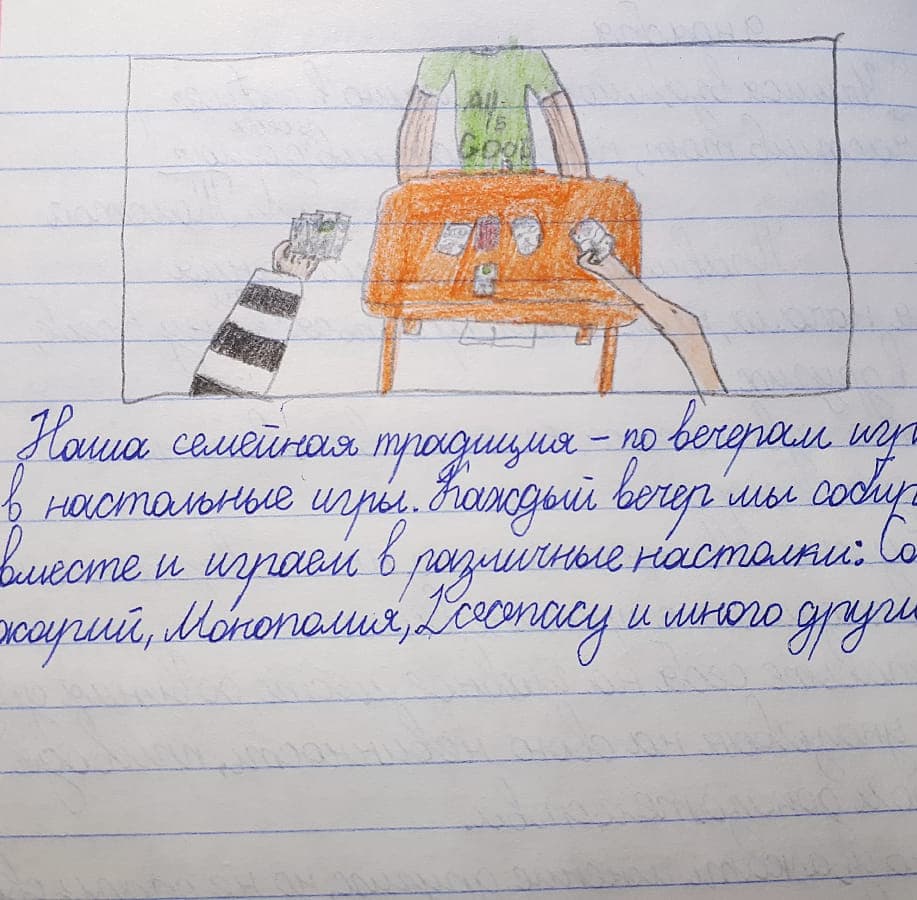 All
is
Good
Наша семейная традиция – по вечерам игр
в настольные игры. Каждый вечер мы собир
вместе и играем в различные настолки: Со
Монополия, и много други